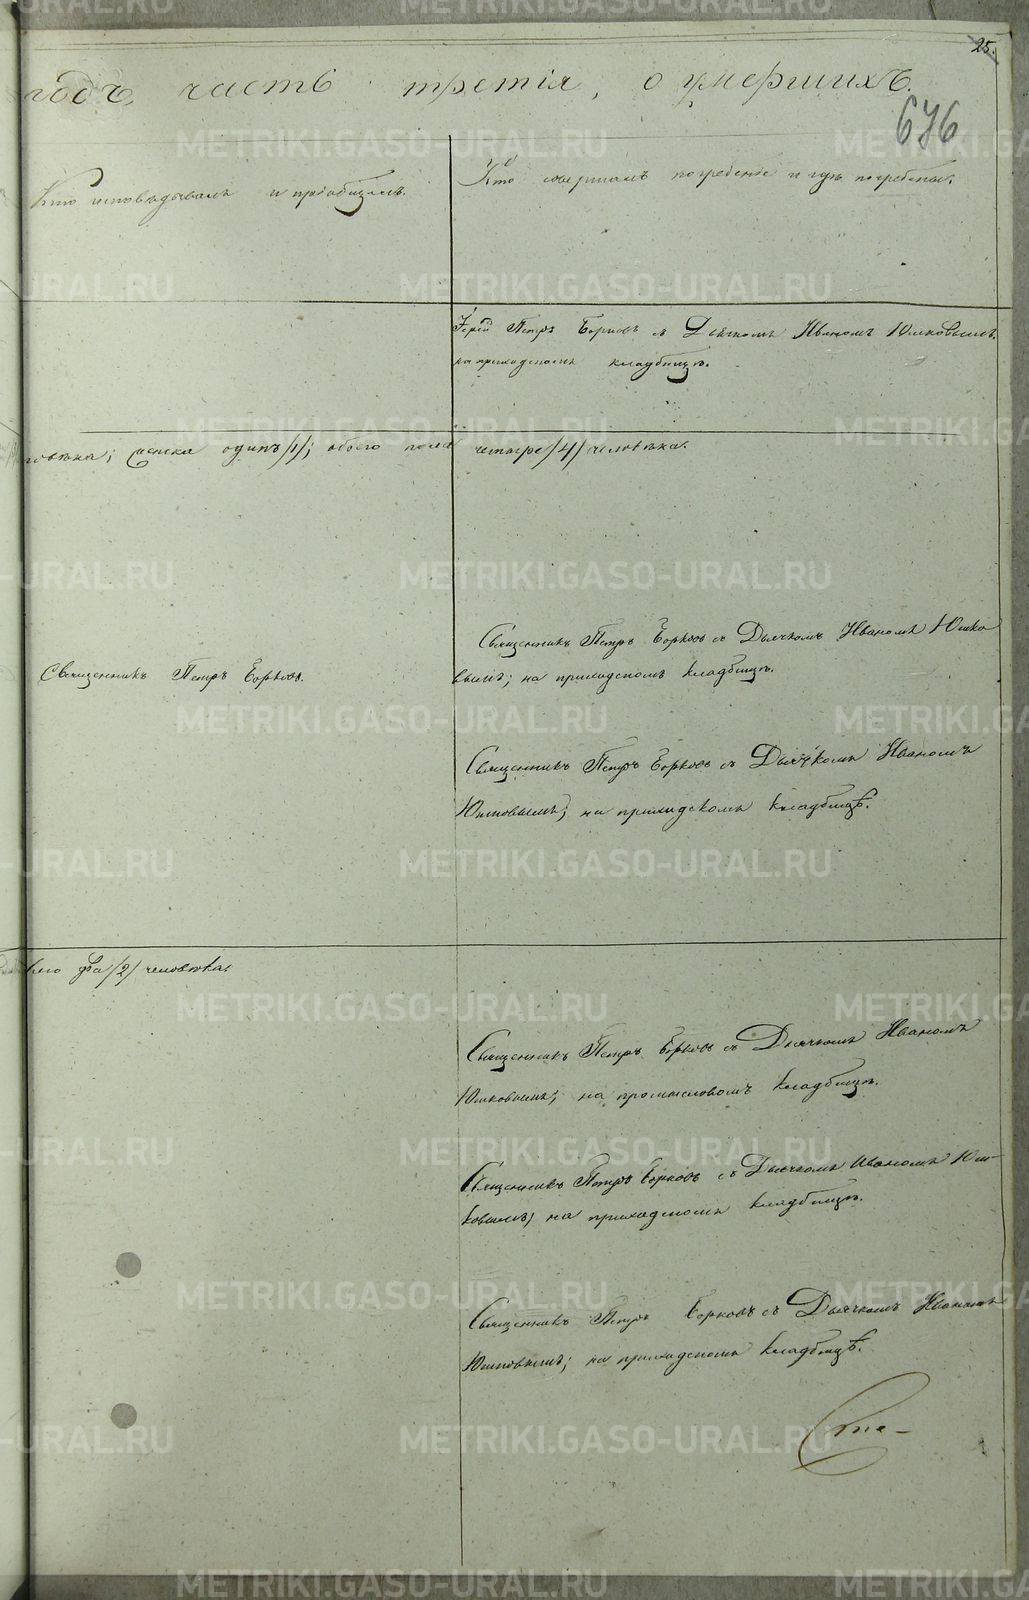 25.
годъ, часть третія, о умершихъ.
676
Кто исповѣдывалъ и пріобщалъ.
Кто совершалъ погребеніе и гдѣ погребены.
Іерей Петръ Борковъ съ Дьячкомъ Иваномъ Юшковымъ.
на приходскомъ кладбищѣ.
ловѣка; женска одинъ /1/; обоего пола четыре /4/ человѣка.
Священникъ Петръ Борковъ съ Дьячкомъ Иваномъ Юшко
вымъ; на приходскомъ кладбищѣ.
Священникъ Петръ Борковъ.
Священникъ Петръ Борковъ съ Дьячкомъ Иваномъ
Юшковымъ; на приходскомъ кладбищѣ.
два /2/ человѣка.
Священникъ Петръ Борковъ съ Дьячкомъ Иваномъ
Юшковымъ; на промысловомъ кладбищѣ.
Священникъ Петръ Борковъ съ Дьячкомъ Иваномъ Юш-
ковымъ; на приходскомъ кладбищѣ.
Священникъ Петръ Борковъ съ Дьячкомъ Иваномъ
Юшковымъ; на приходскомъ кладбищѣ.
METRIKI.GASO-URAL.RU